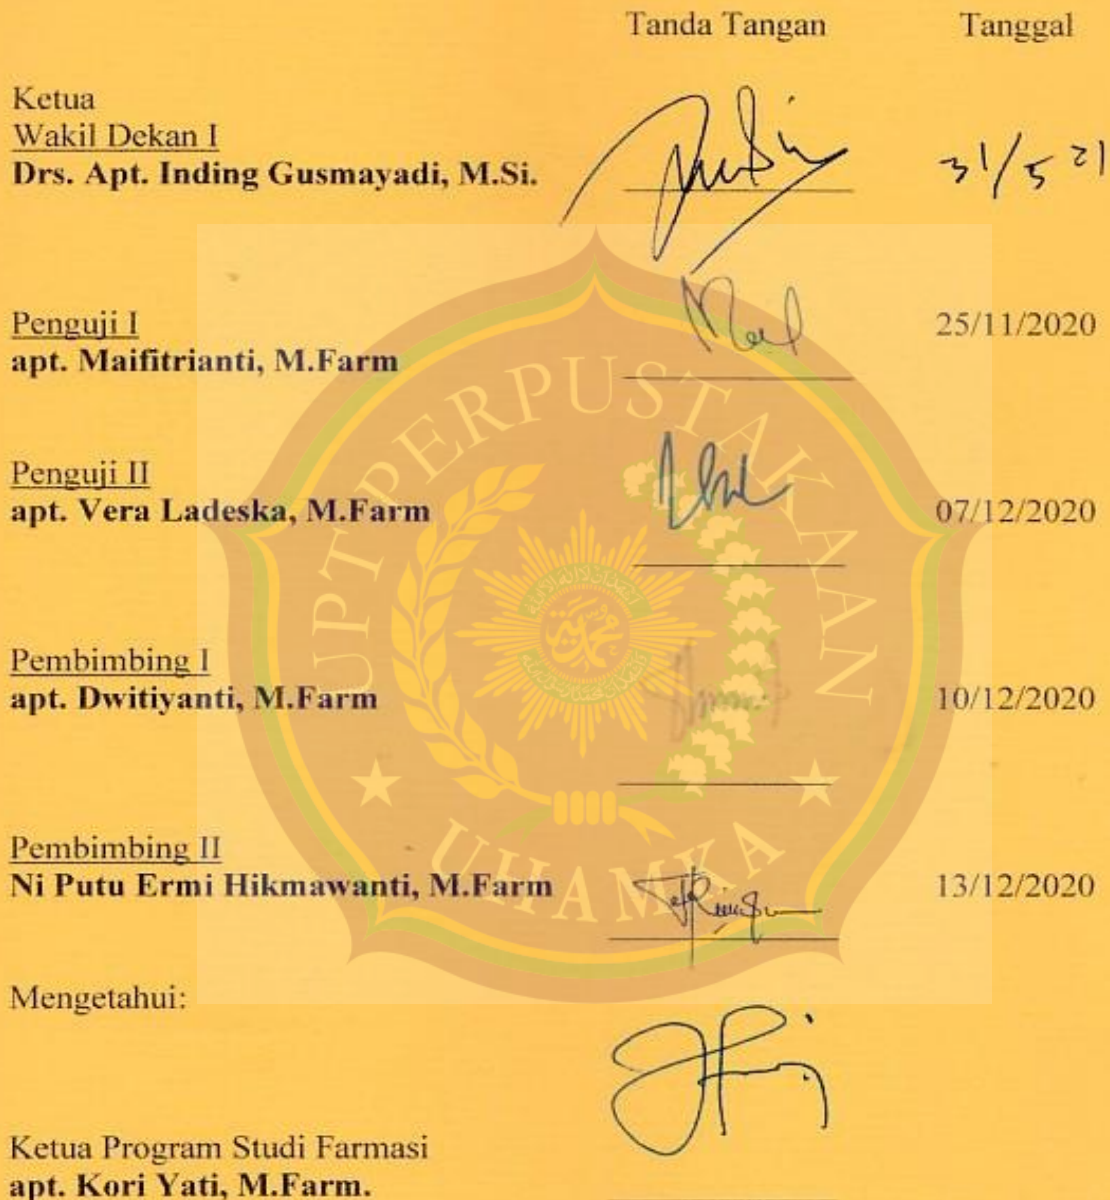 Tanda Tangan Tanggal
Ketua
Wakil Dekan I
Drs. Apt. Inding Gusmayadi, M.Si.
31/5 21
Penguji I
25/11/2020
apt. Maifitrianti, M.Farm
Penguji II
apt. Vera Ladeska, M.Farm
07/12/2020
Pembimbing I
apt. Dwitiyanti, M.Farm
10/12/2020
Pembimbing II
Ni Putu Ermi Hikmawanti, M.Farm
13/12/2020
Mengetahui:
Ketua Program Studi Farmasi
apt. Kori Yati, M.Farm.
UPT PERPUSTAKAAN
UHAMKA